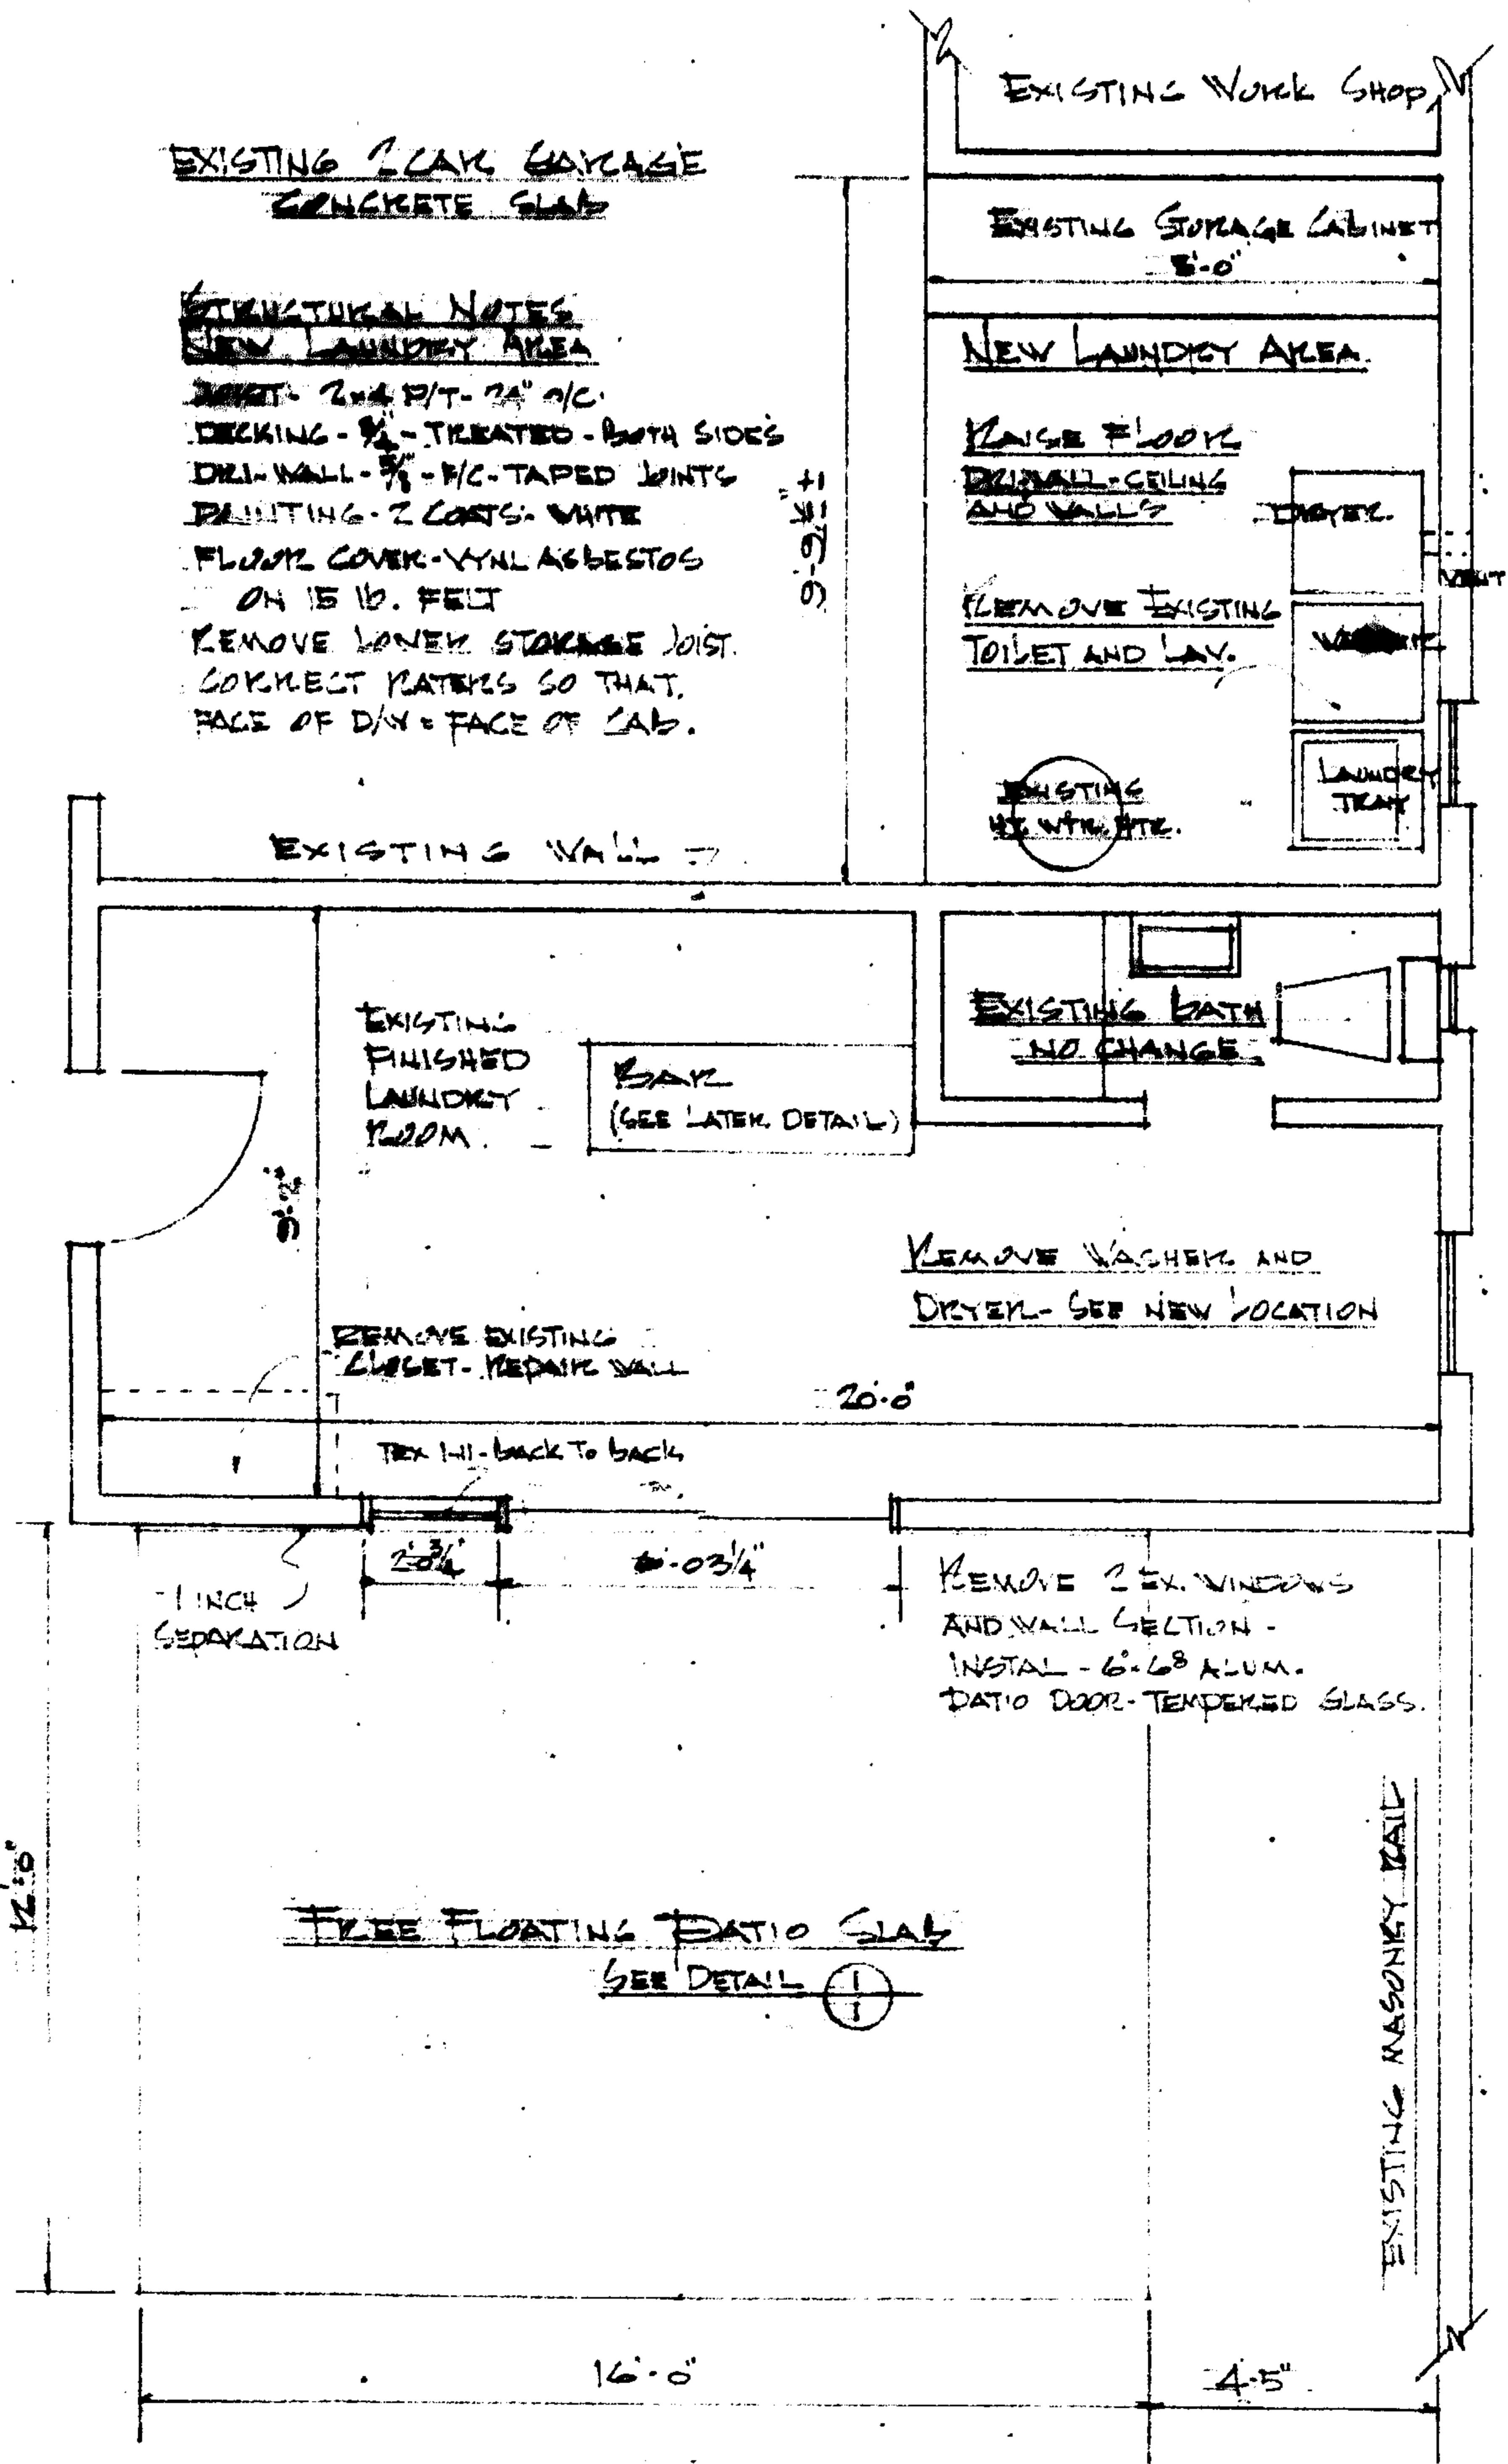 EXISTING WORK SHOP
EXISTING 2 CAR GARAGE
CONCRETE SLAB
EXISTING STORAGE CABINET
8'-0"
STRUCTURAL NOTES
NEW LAUNDRY AREA
JOIST - 2x4 P/T - 24" O/C.
DECKING - 3/4" - TREATED - BOTH SIDES
DRI-WALL - 5/8" - F/C - TAPED JOINTS
PAINTING - 2 COATS - WHITE
FLOOR COVER - VYNL ASBESTOS
ON 15 lb. FELT
REMOVE LOWER STORAGE JOIST.
CORRECT RATERS SO THAT.
FACE OF D/W = FACE OF CAB.
9'-9 1/2" ±
NEW LAUNDRY AREA.
RAISE FLOOR
DRI-WALL - CEILING
AND WALLS
DRYER.
VENT
REMOVE EXISTING
TOILET AND LAV.
WASHER
LAUNDRY
TRAY
EXISTING
HT. WTR. HTR.
EXISTING WALL
EXISTING
FINISHED
LAUNDRY
ROOM.
BAR
(SEE LATER DETAIL)
EXISTING BATH
NO CHANGE
9'-2"
REMOVE WASHER AND
DRYER - SEE NEW LOCATION
REMOVE EXISTING
CLOSET - REPAIR WALL
20'-0"
TEX 1-11 - BACK TO BACK
2'-0 3/4"
6'-0 3/4"
1 INCH
SEPARATION
REMOVE 2 EX. WINDOWS
AND WALL SECTION -
INSTAL - 6°-6⁸ ALUM.
PATIO DOOR - TEMPERED GLASS.
12'-0"
FREE FLOATING PATIO SLAB
SEE DETAIL 1
1
EXISTING MASONRY RAIL
16'-0"
4'-5"